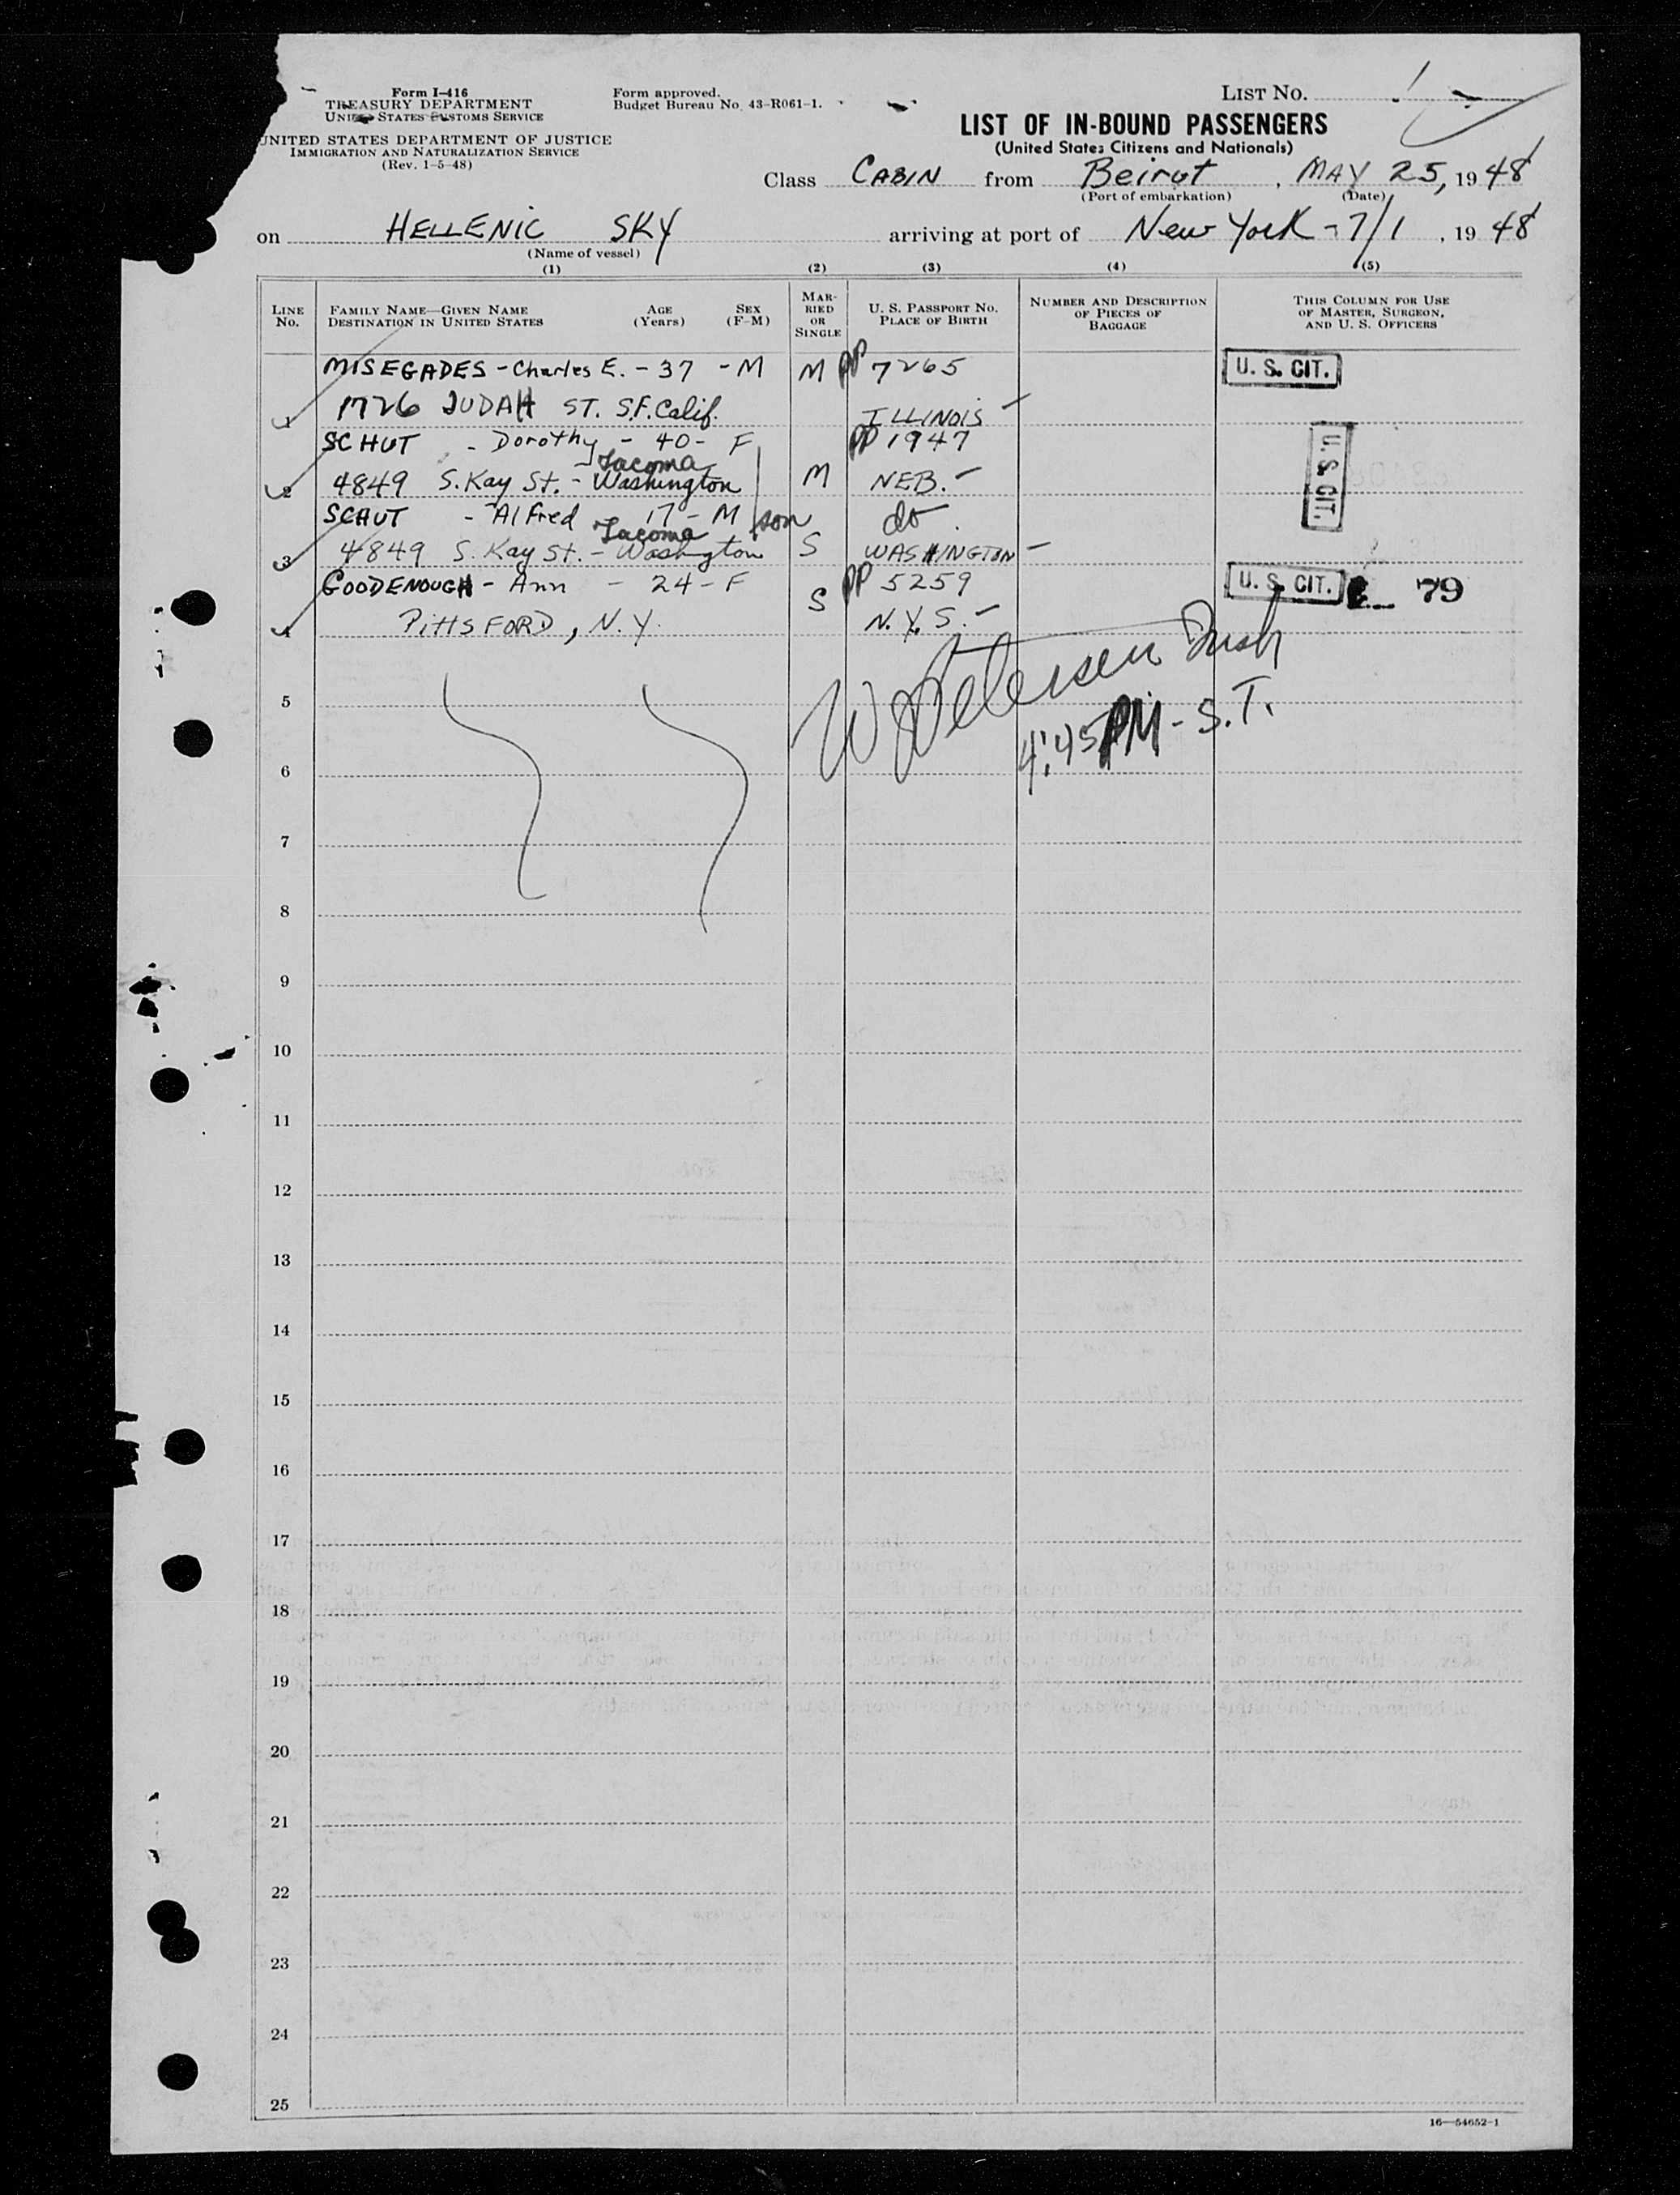 Form I-416
TREASURY DEPARTMENT
UNITED STATES CUSTOMS SERVICE
UNITED STATES DEPARTMENT OF JUSTICE
IMMIGRATION AND NATURALIZATION SERVICE
(Rev. 1-5-48)
Form approved.
Budget Bureau No. 43-R061-1.
LIST NO. 1
LIST OF IN-BOUND PASSENGERS
(United States Citizens and Nationals)
Class CABIN from Beirut, MAY 25, 1948
(Port of embarkation) (Date)
on HELLENIC SKY arriving at port of New York - 7/1, 1948
(Name of vessel)
(1) (2) (3) (4) (5)
LINE No. FAMILY NAME—GIVEN NAME DESTINATION IN UNITED STATES AGE (Years) SEX (F-M) MARRIED OR SINGLE U. S. PASSPORT NO. PLACE OF BIRTH NUMBER AND DESCRIPTION OF PIECES OF BAGGAGE THIS COLUMN FOR USE OF MASTER, SURGEON, AND U. S. OFFICERS
MISEGADES - Charles E. - 37 - M M PP 7265 U. S. CIT.
1 1726 JUDAH ST. S.F. Calif. ILLINOIS -
SCHUT - Dorothy - 40 - F PP 1947 U. S. CIT.
Tacoma
2 4849 S. Kay St. - Washington M NEB. -
SCHUT - Alfred 17 - M son do.
Tacoma
3 4849 S. Kay St. - Washington S WASHINGTON -
GOODENOUGH - Ann - 24 - F S PP 5259 U. S. CIT. 79
4 PITTSFORD, N.Y. N.Y.S. -
W Petersen
5
4:45 PM - S.T.
6
7
8
9
10
11
12
13
14
15
16
17
18
19
20
21
22
23
24
25
16—54652-1